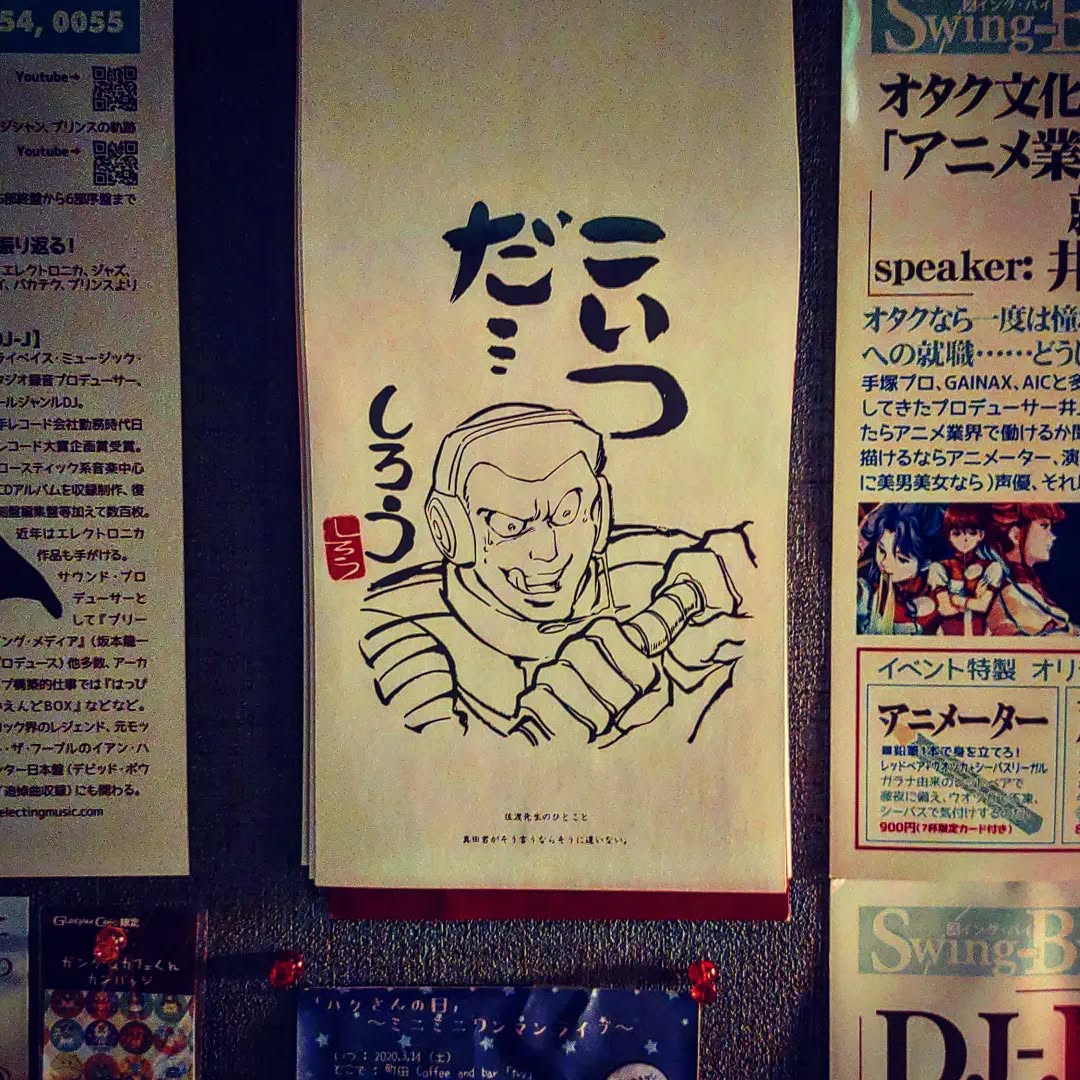 54, 0055
Youtube→
ジシャン、プリンスの軌跡
Youtube→
部終盤から6部序盤まで
振り返る!
エレクトロニカ、ジャズ、
バカテク、プリンスより
DJ-J】
ライベイス・ミュージック・
タジオ録音プロデューサー、
ールジャンルDJ。
手レコード会社勤務時代日
レコード大賞企画賞受賞。
ロースティック系音楽中心
CDアルバムを収録制作、復
刻盤編集盤等加えて数百枚。
近年はエレクトロニカ
作品も手がける。
サウンド・プロ
デューサーと
して『ブリー
ング・メディア』(坂本龍一
ロデュース)他多数、アーカ
ブ構築的仕事では『はっぴ
いえんどBOX』などなど。
ロック界のレジェンド、元モッ
・ザ・フープルのイアン・ハ
ンター日本盤(デビッド・ボウ
追悼曲収録)にも関わる。
electingmusic.com
こいつ
だミ
しろう
しろう
佐渡先生のひとこと
真田君がそう言うならそうに違いない。
スイング・バイ
Swing-B
オタク文化
「アニメ業
speaker: 井
オタクなら一度は憧
への就職……どうに
手塚プロ、GAINAX、AICと多
してきたプロデューサー井
たらアニメ業界で働けるか
描けるならアニメーター、演
に美男美女なら)声優、それ
イベント特製 オリ
アニメーター
■鉛筆1本で身を立てろ!
レッドベア+ウオツカ+シーバスリーガル
ガラナ由来の
徹夜に備え、
シーバスで気付けする
900円(7杯限定カード付き)
スイング・バイ
Swing-B
DJ-
限定
カンバッジ
「ハクさんの日」
~ミニミニワンマンライブ~
いつ:2020.3.14 (土)
どこで:町田 Coffee and bar